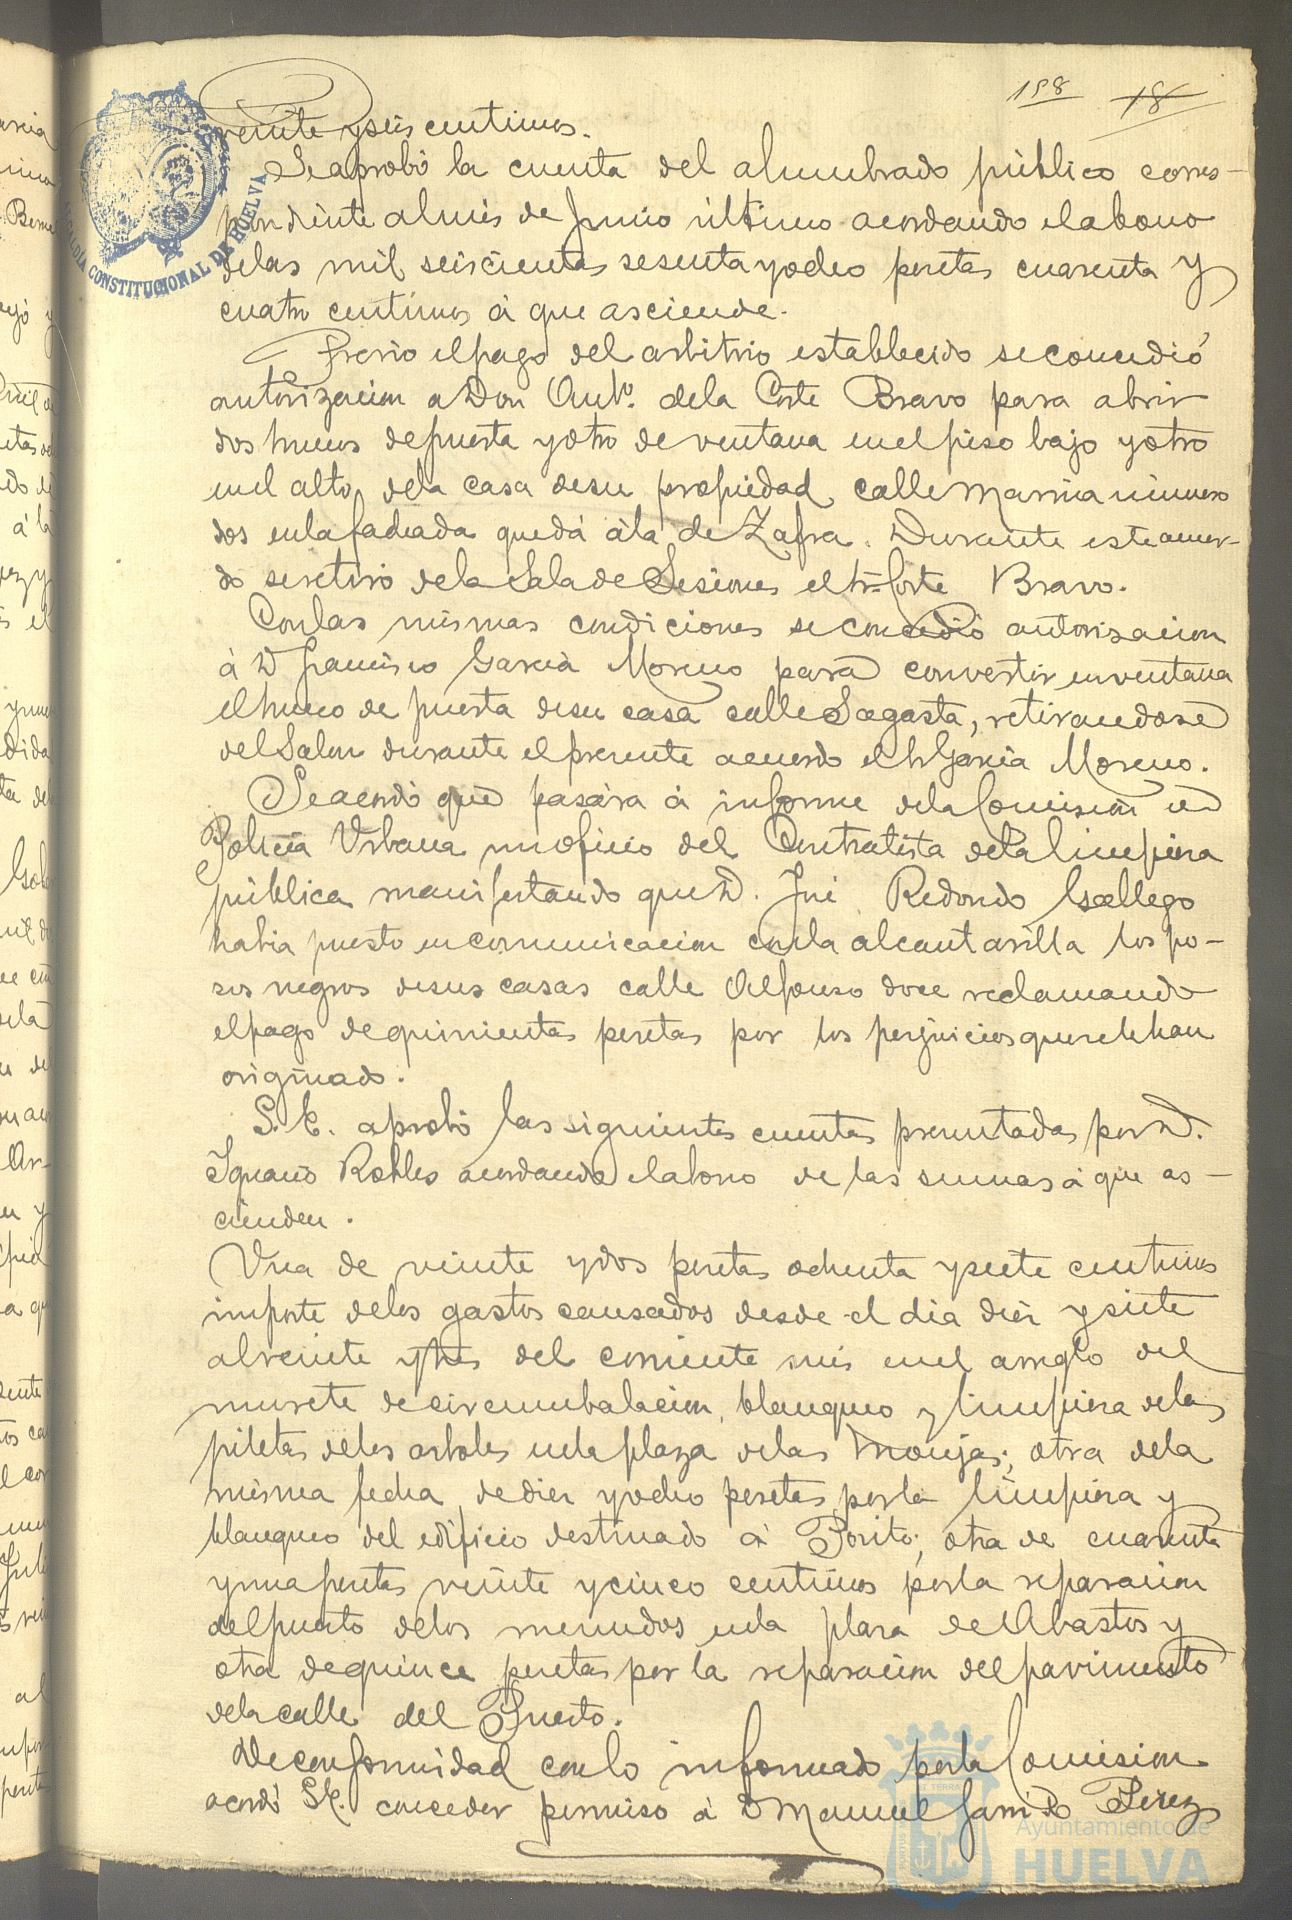 158 18
veinte y seis centimos.
Se aprobó la cuenta del alumbrado público corres-
pondiente al mes de Junio último acordando el abono
de las mil seiscientas sesenta y ocho pesetas cuarenta y
cuatro centimos á que asciende.
Previo el pago del arbitrio establecido se concedió
autorizacion a Don Antº. de la Corte Bravo para abrir
dos huecos de puerta y otro de ventana en el piso bajo y otro
en el alto de la casa de su propiedad calle Marina número
dos en la fachada que dá á la de Zafra. Durante este acuer-
do se retiró de la Sala de Sesiones el Sr. Corte Bravo.
Con las mismas condiciones se concedió autorizacion
á D Francisco Garcia Moreno para convertir en ventana
el hueco de puerta de su casa calle Sagasta, retirandose
del Salon durante el presente acuerdo el Sr Garcia Moreno.
Se acordó que pasára á informe de la Comision de
Policía Urbana un oficio del Contratista de la limpieza
pública manifestando que D. José Redondo Gallego
habia puesto en comunicacion con la alcantarilla los po-
sos negros de sus casas calle Alfonso doce reclamando
el pago de quinientas pesetas por los perjuicios que se le han
originado.
S. E. aprobó las siguientes cuentas presentadas por D.
Ignacio Robles acordando el abono de las sumas á que as-
cienden.
Una de veinte y dos pesetas ochenta y siete centimos
importe de los gastos causados desde el dia diez y siete
al veinte y tres del corriente mes en el arreglo del
murete de circumbalacion, blanqueo y limpieza de las
piletas de los arboles en la plaza de las Monjas; otra de la
misma fecha de diez y ocho pesetas por la limpieza y
blanqueo del edificio destinado á Posito; otra de cuarenta
y una pesetas veinte y cinco centimos por la reparacion
del puesto de los menudos en la plaza de Abastos y
otra de quince pesetas por la reparacion del pavimento
de la calle del Puerto.
De conformidad con lo informado por la Comision
acordó S.E. conceder permiso á D Manuel Garrido Perez
ALCALDÍA CONSTITUCIONAL DE HUELVA
Ayuntamiento de
HUELVA